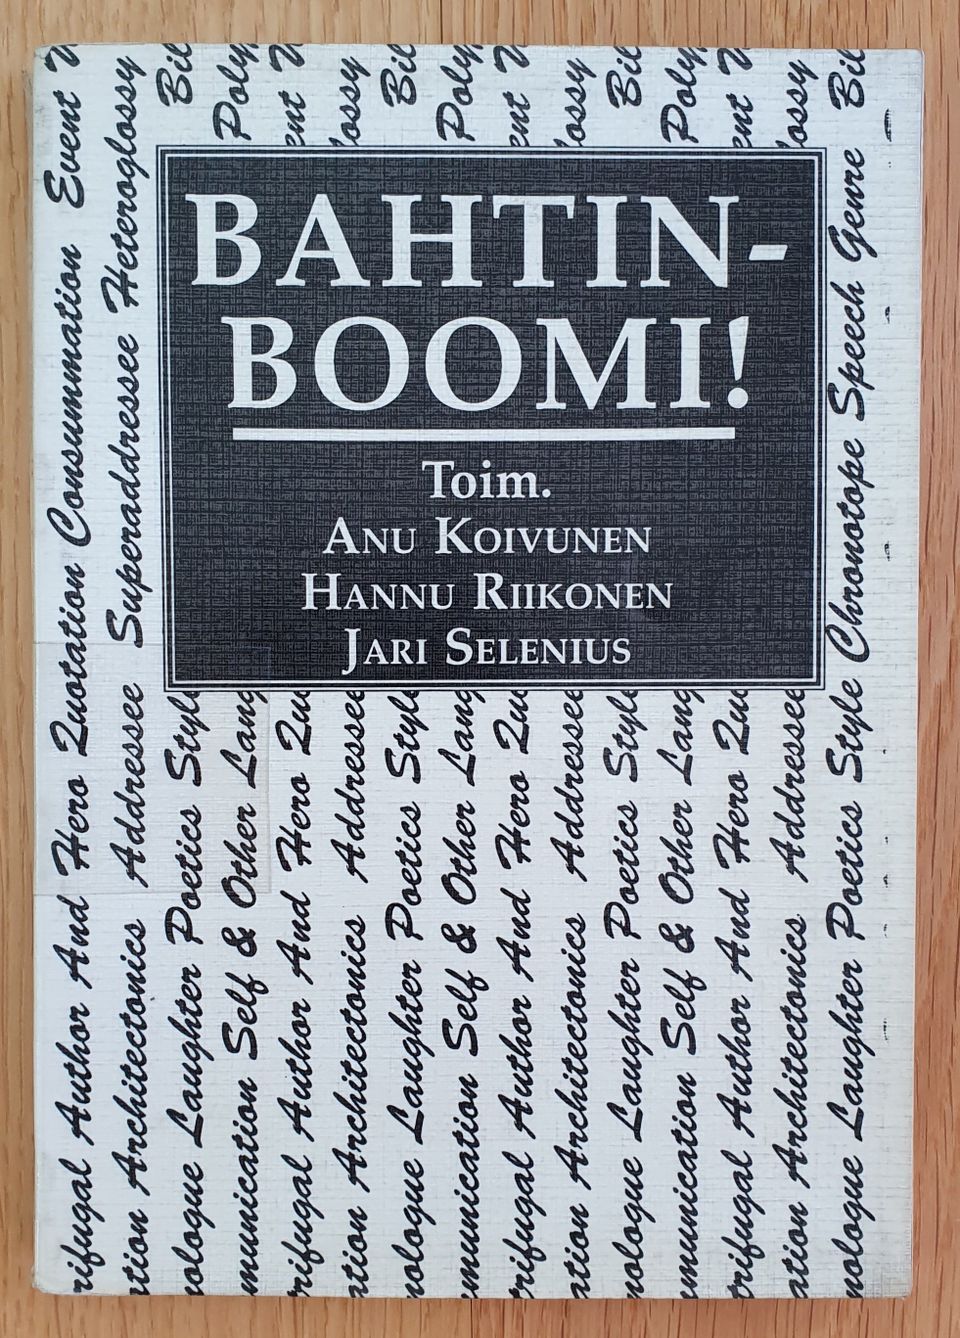 BAHTIN-
BOOMI!
Toim.
ANU KOIVUNEN
HANNU RIIKONEN
JARI SELENIUS
rifugal Author And Hero Quotation Consummation Event
Architectonics Addressee Superaddressee Heteroglossy
Laughter Poetics Style Bil
Self & Other Lang Poly
rifugal Author And Hero Quo ent
ation Architectonics Addressee lossy
nologue Laughter Poetics Style Bil
munication Self & Other Lang Poly
rifugal Author And Hero Quo ent
ation Architectonics Addressee lossy
nologue Laughter Poetics Style Bil
munication Self & Other Lang Poly
trifugal Author And Hero Quo ent
ation Architectonics Addressee lossy
nologue Laughter Poetics Style Chronotope Speech Genre Bil